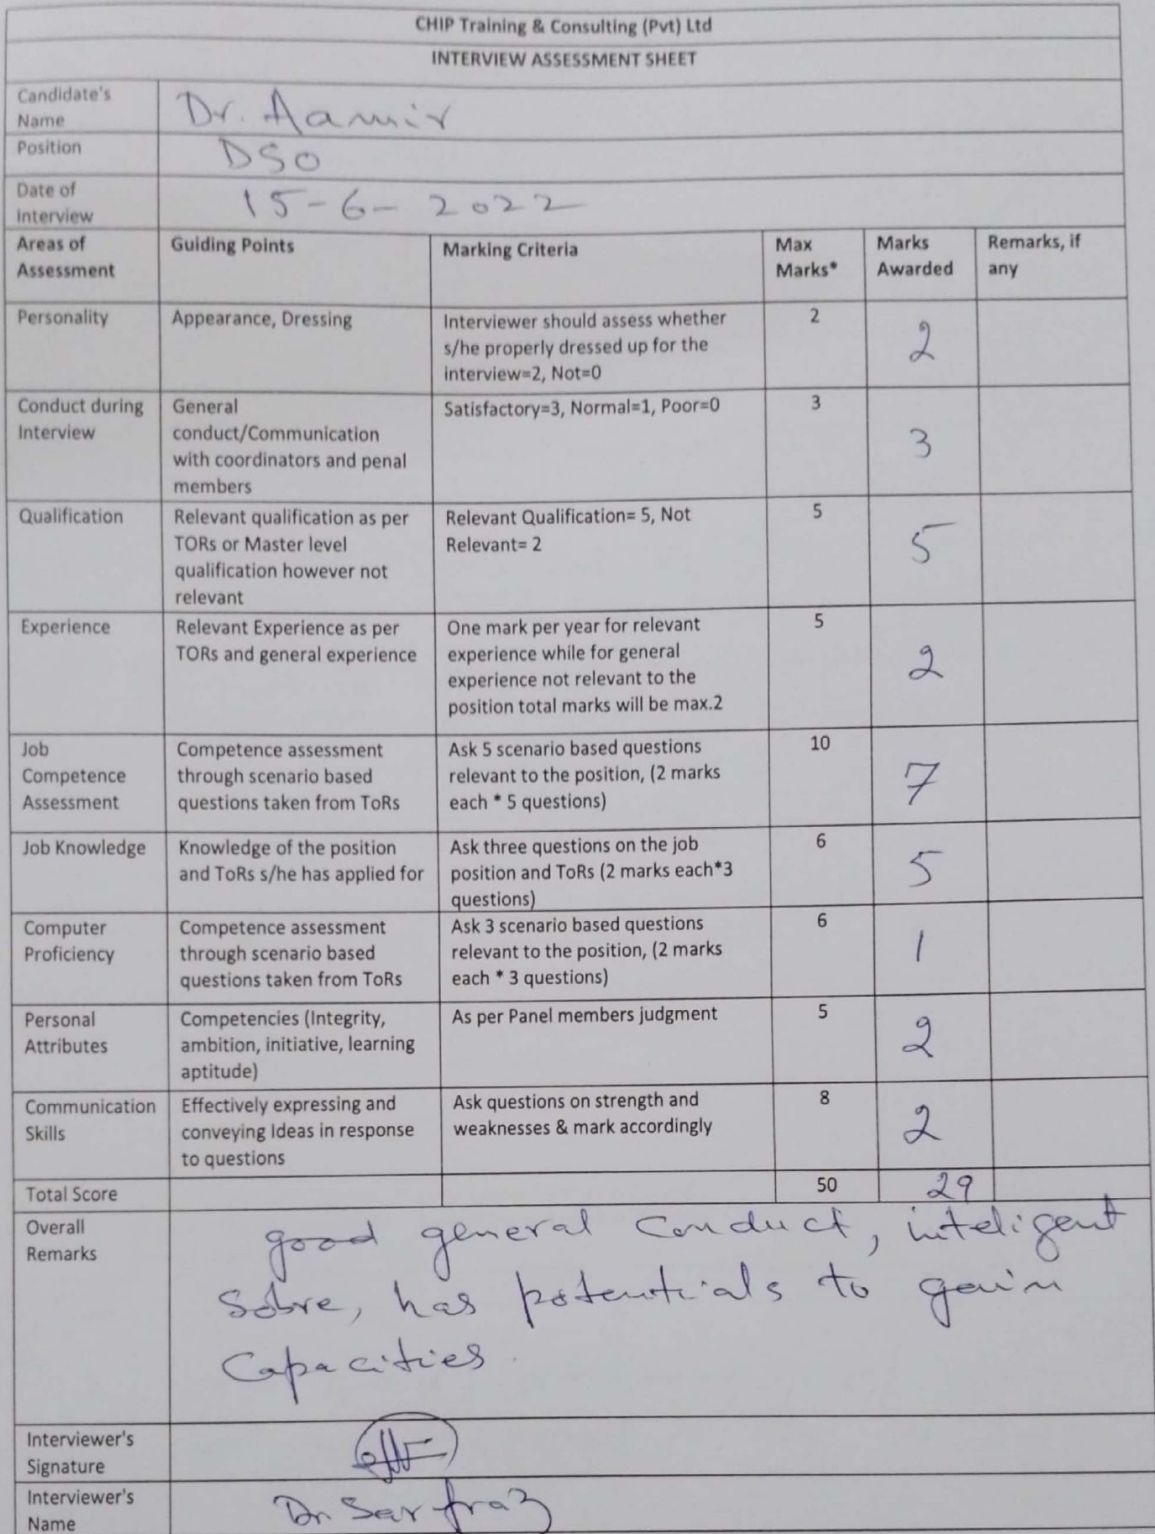 CHIP Training & Consulting (Pvt) Ltd
INTERVIEW ASSESSMENT SHEET
Candidate's
Name
Dr. Aamir
Position
DSO
Date of
Interview
15-6-2022
Areas of
Assessment
Guiding Points
Marking Criteria
Max
Marks*
Marks
Awarded
Remarks, if
any
Personality
Appearance, Dressing
Interviewer should assess whether
s/he properly dressed up for the
interview=2, Not=0
2
2
Conduct during
Interview
General
conduct/Communication
with coordinators and penal
members
Satisfactory=3, Normal=1, Poor=0
3
3
Qualification
Relevant qualification as per
TORs or Master level
qualification however not
relevant
Relevant Qualification= 5, Not
Relevant= 2
5
5
Experience
Relevant Experience as per
TORs and general experience
One mark per year for relevant
experience while for general
experience not relevant to the
position total marks will be max.2
5
2
Job
Competence
Assessment
Competence assessment
through scenario based
questions taken from ToRs
Ask 5 scenario based questions
relevant to the position, (2 marks
each * 5 questions)
10
7
Job Knowledge
Knowledge of the position
and ToRs s/he has applied for
Ask three questions on the job
position and ToRs (2 marks each*3
questions)
6
5
Computer
Proficiency
Competence assessment
through scenario based
questions taken from ToRs
Ask 3 scenario based questions
relevant to the position, (2 marks
each * 3 questions)
6
1
Personal
Attributes
Competencies (Integrity,
ambition, initiative, learning
aptitude)
As per Panel members judgment
5
2
Communication
Skills
Effectively expressing and
conveying Ideas in response
to questions
Ask questions on strength and
weaknesses & mark accordingly
8
2
Total Score
50
29
Overall
Remarks
good general conduct, inteligent
Sobre, has potentials to gain
Capacities.
Interviewer's
Signature
Interviewer's
Name
Dr. Sarfraz